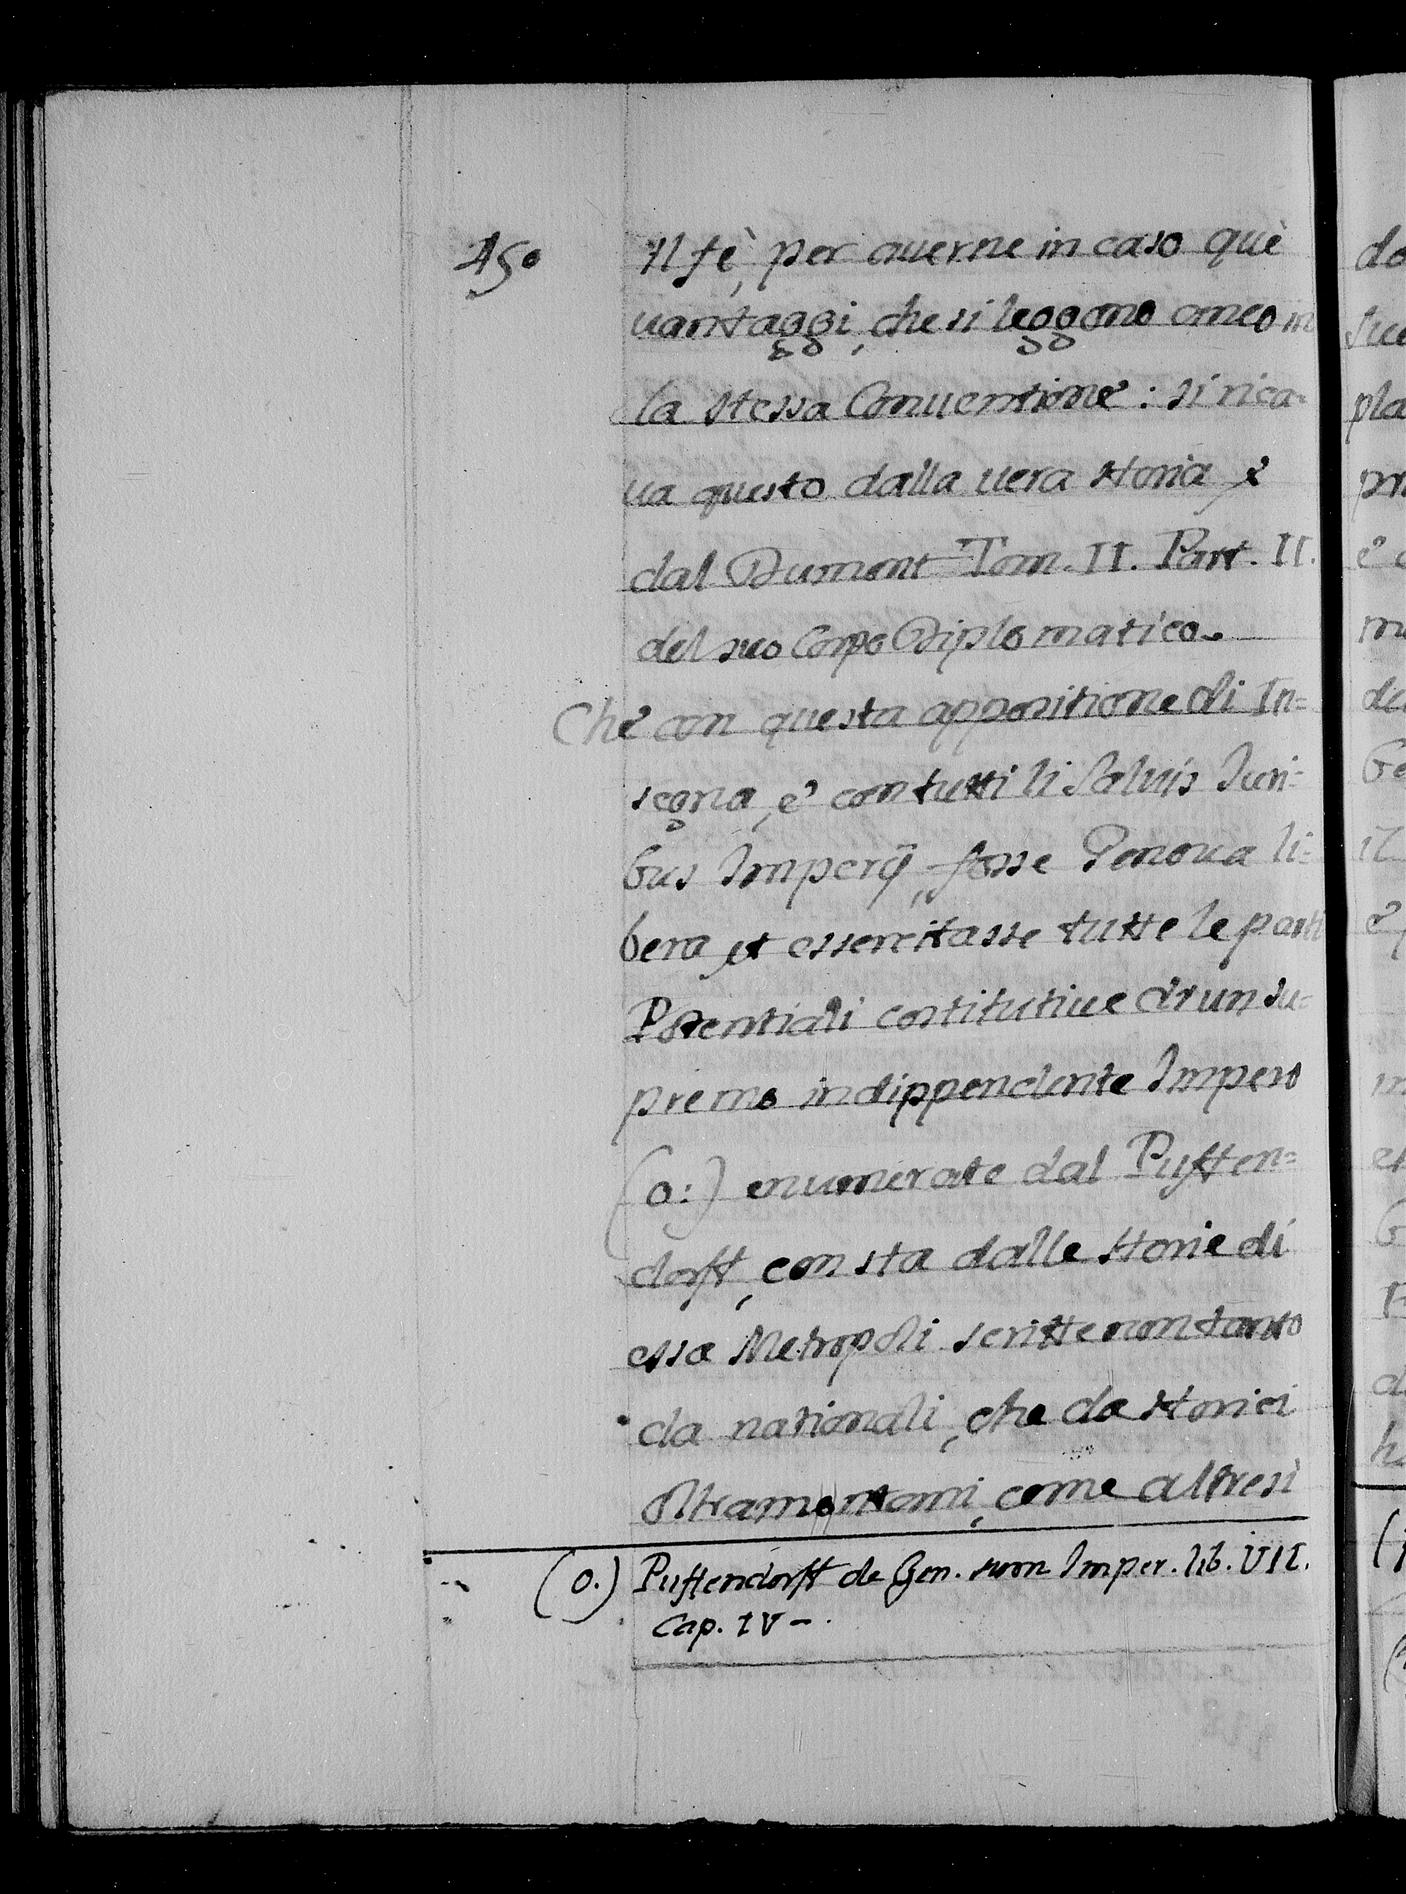 450
Il fè, per auerne in caso què
uantaggi, che si leggono anco in
la stessa Conuentione: si rica=
ua questo dalla uera storia è
dal Dumont Tom. II. Part. II.
del suo Corpo Diplomatico.
Che con questa appositione di In=
segna, è con tutti li Saluis Juri=
bus Imperÿ, fosse Genoua li=
bera et essercitasse tutte le parti
Potentiali costitutiue di un su=
premo indippendente Impero
(o:) enumerate dal Puffen=
dorff, consta dalle storie di
essa Metropoli scritte non tanto
da nationali, che da storici
Oltramontani, come altresì
(o.) Puffendorff de Gen. sum Imper. lib. VII.
Cap. IV -.
do
sue
pla
pri
è
Ge
il
è
in
et
G